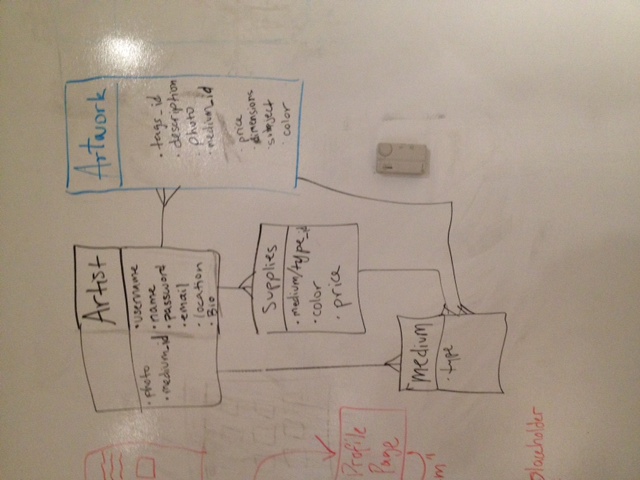 Artist
· photo
· medium_id
· username
· name
· password
· email
· location
· Bio
Artwork
· tags_id
· description
· photo
· medium_id
· price
· dimensions
· subject
· color
Supplies
· medium/type_id
· color
· price
medium
· type
Profile
Page
m"
placeholder